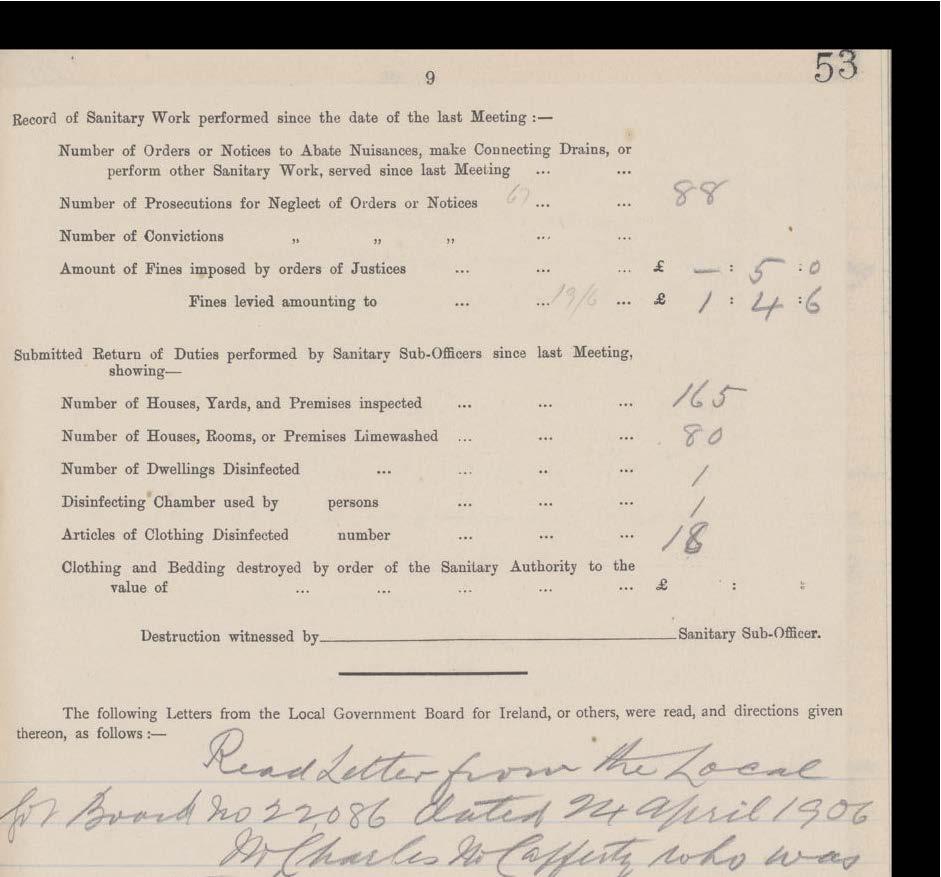 53
9
Record of Sanitary Work performed since the date of the last Meeting :—
Number of Orders or Notices to Abate Nuisances, make Connecting Drains, or
perform other Sanitary Work, served since last Meeting ... ...
Number of Prosecutions for Neglect of Orders or Notices ... ... 88
Number of Convictions „ „ „ ... ...
Amount of Fines imposed by orders of Justices ... ... ... £ — : 5 : 0
Fines levied amounting to ... ... 19/6 ... £ 1 : 4 : 6
Submitted Return of Duties performed by Sanitary Sub-Officers since last Meeting,
showing—
Number of Houses, Yards, and Premises inspected ... ... ... 165
Number of Houses, Rooms, or Premises Limewashed ... ... ... 80
Number of Dwellings Disinfected ... ... .. ... 1
Disinfecting Chamber used by persons ... ... ... 1
Articles of Clothing Disinfected number ... ... ... 18
Clothing and Bedding destroyed by order of the Sanitary Authority to the
value of ... ... ... ... ... £ : :
Destruction witnessed by Sanitary Sub-Officer.
The following Letters from the Local Government Board for Ireland, or others, were read, and directions given
thereon, as follows :—
Read Letter from the Local
Board No 22,086 dated 24 April 1906
Mr Charles McCafferty who was